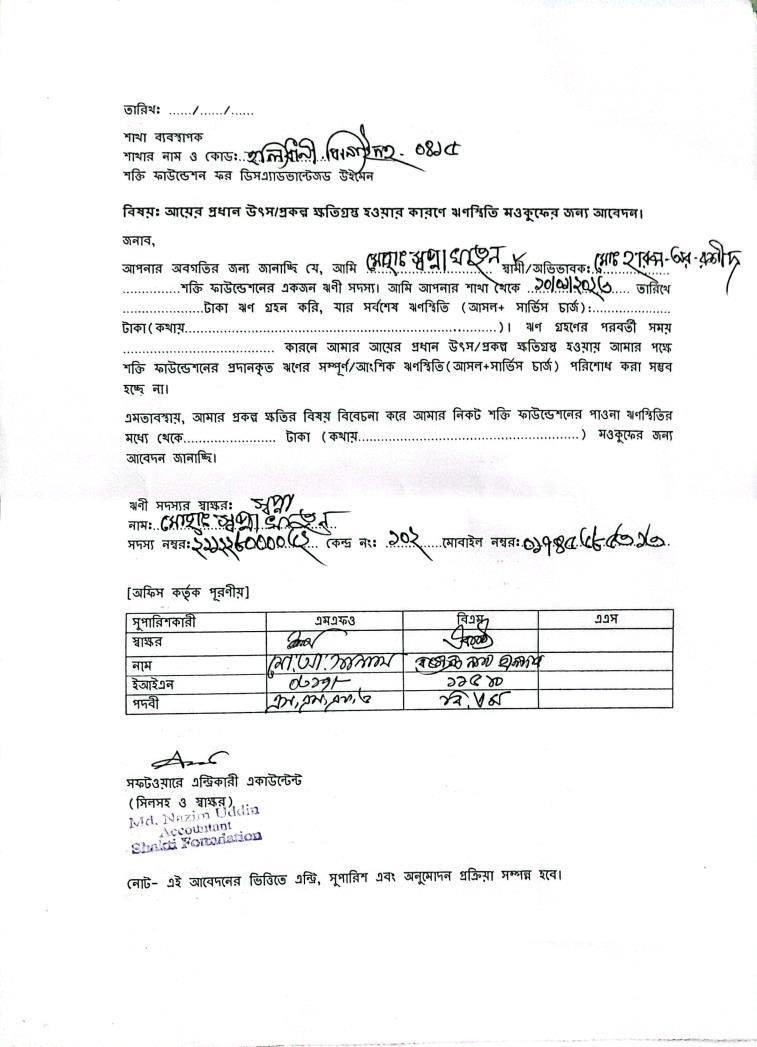 তারিখ: ....../....../......
শাখা ব্যবস্থাপক
শাখার নাম ও কোড:.. ঝিনাইদহ - ০৪১৫
শক্তি ফাউন্ডেশন ফর ডিসএ্যাডভান্টেজড উইমেন
বিষয়: আয়ের প্রধান উৎস/প্রকল্প ক্ষতিগ্রস্ত হওয়ার কারণে ঋণস্থিতি মওকুফের জন্য আবেদন।
জনাব,
আপনার অবগতির জন্য জানাচ্ছি যে, আমি মোছাঃ স্বপ্না খাতুন স্বামী/অভিভাবক: মোঃ হারুন-অর-রশীদ
...............শক্তি ফাউন্ডেশনের একজন ঋণী সদস্য। আমি আপনার শাখা থেকে ...... তারিখে
.....................টাকা ঋণ গ্রহন করি, যার সর্বশেষ ঋণস্থিতি (আসল+ সার্ভিস চার্জ):....................
টাকা(কথায়..............................................................................)। ঋণ গ্রহণের পরবর্তী সময়
...................................... কারনে আমার আয়ের প্রধান উৎস/প্রকল্প ক্ষতিগ্রস্ত হওয়ায় আমার পক্ষে
শক্তি ফাউন্ডেশনের প্রদানকৃত ঋণের সম্পূর্ণ/আংশিক ঋণস্থিতি(আসল+সার্ভিস চার্জ) পরিশোধ করা সম্ভব
হচ্ছে না।
এমতাবস্থায়, আমার প্রকল্প ক্ষতির বিষয় বিবেচনা করে আমার নিকট শক্তি ফাউন্ডেশনের পাওনা ঋণস্থিতির
মধ্যে থেকে....................... টাকা (কথায়.......................................................) মওকুফের জন্য
আবেদন জানাচ্ছি।
ঋণী সদস্যর স্বাক্ষর: স্বপ্না
নাম:.. মোছাঃ স্বপ্না খাতুন
সদস্য নম্বর: কেন্দ্র নং: ১০২ ......মোবাইল নম্বর:
[অফিস কর্তৃক পূরণীয়]
সুপারিশকারী এমএফও বিএম এএস
স্বাক্ষর
নাম
ইআইএন
পদবী
সফটওয়ারে এন্ট্রিকারী একাউন্টেন্ট
(সিলসহ ও স্বাক্ষর)
Md. Nazim Uddin
Accountant
Shakti Foundation
নোট- এই আবেদনের ভিত্তিতে এন্ট্রি, সুপারিশ এবং অনুমোদন প্রক্রিয়া সম্পন্ন হবে।